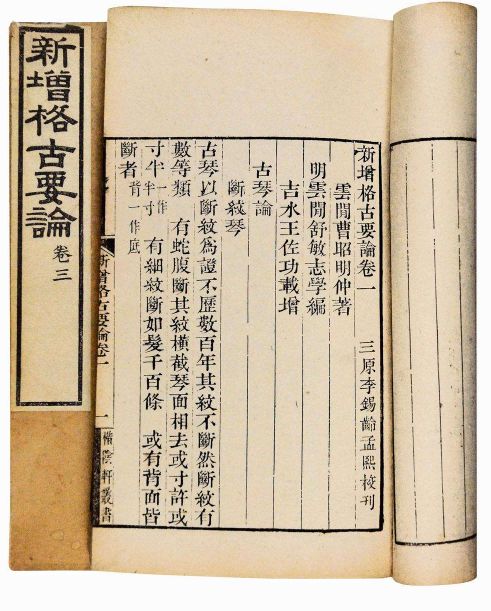 新增格古要論卷一 三原李錫齡孟熙校刊
雲閒曹昭明仲著
明雲閒舒敏志學編
吉水王佐功載增
古琴論
斷紋琴
古琴以斷紋爲證不歷數百年其紋不斷然斷紋有
數等類 有蛇腹斷其紋橫截琴面相去或寸許或
寸半一作半寸 有細紋斷如髮千百條 或有背面皆
斷者背一作底
新增格古要論卷一 一 惜陰軒叢書
新增格古要論 卷三